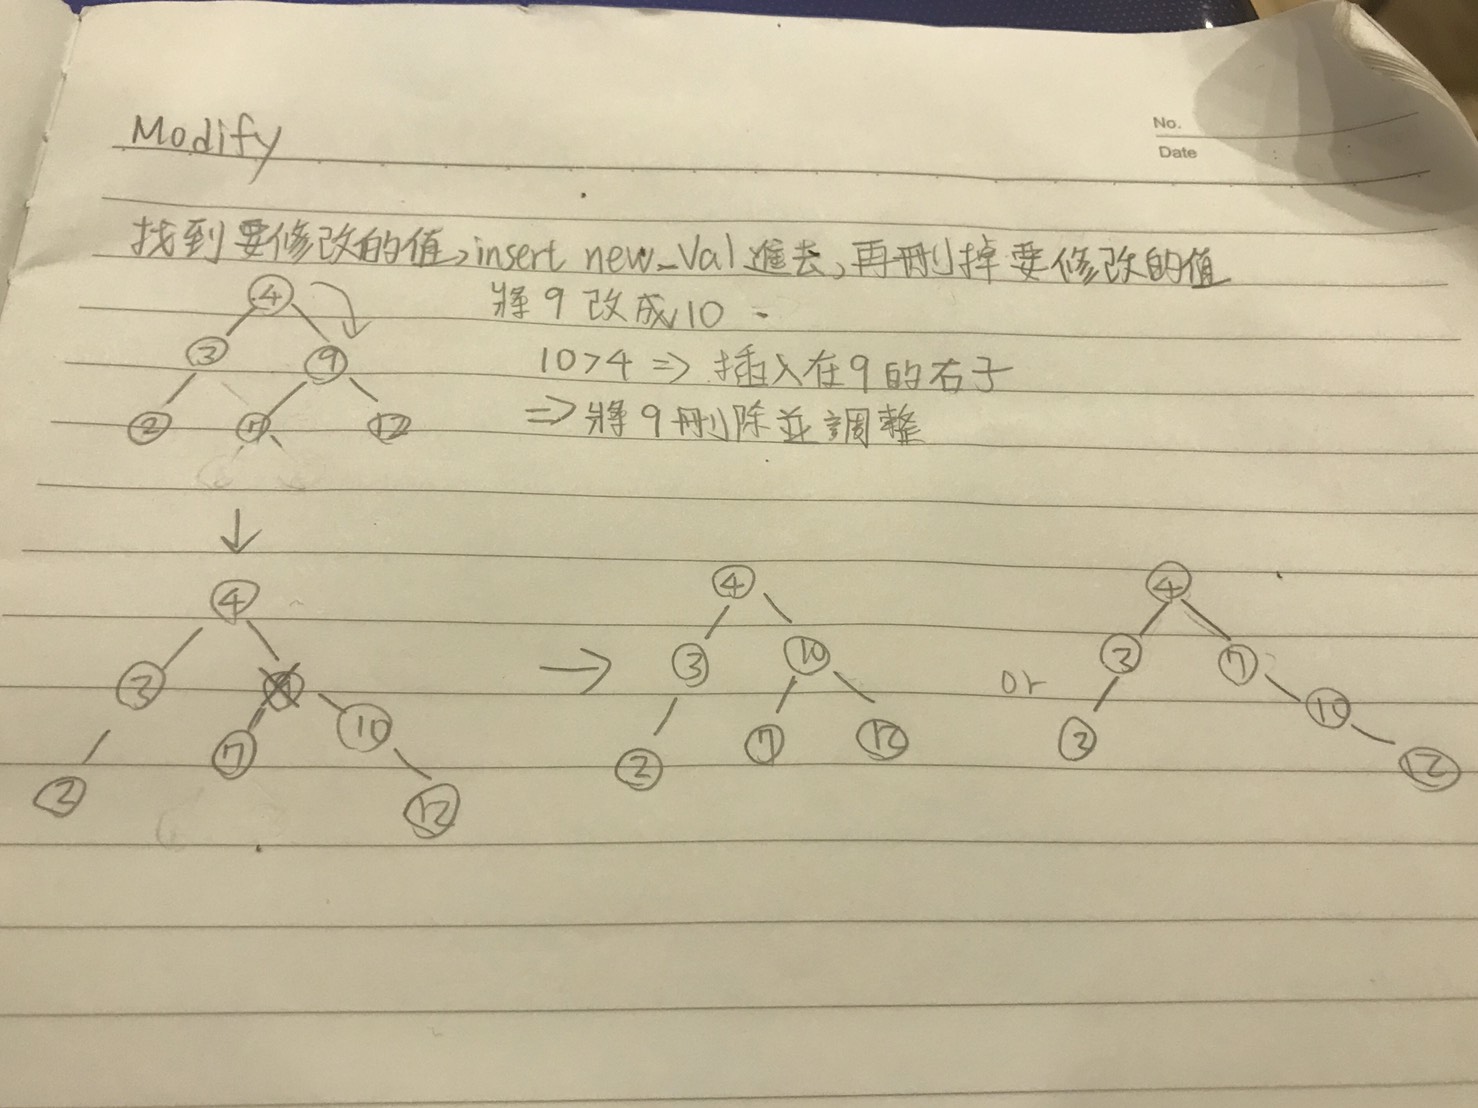 Modify
No.
Date
找到要修改的值,insert new_Val進去,再刪掉要修改的值
將9改成10.
10>4 => 插入在9的右子
=> 將9刪除並調整
4
3 9
2 7 12
↓
4
3 9
7 10
2 12
→
4
3 10
2 7 12
or
4
3 7
2 10
12